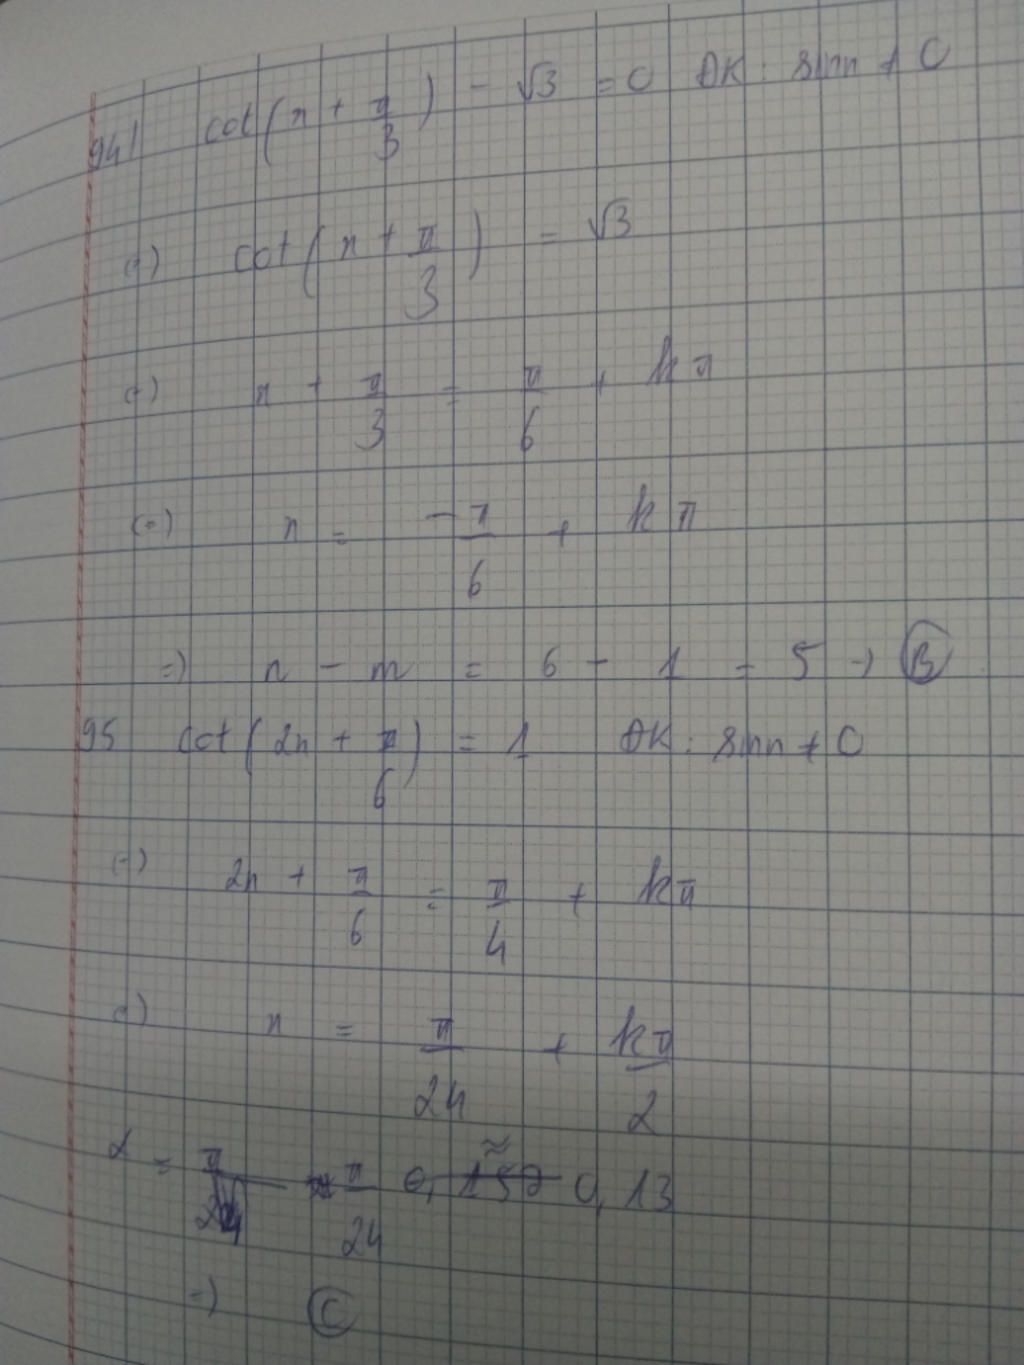 94) cot(x + π/3) - √3 = 0 ĐK: sinx ≠ 0
(=) cot(x + π/3) = √3
(=) x + π/3 = π/6 + kπ
(=) x = -π/6 + kπ
=) n - m = 6 - 1 = 5 → B
95 cot(2x + π/6) = 1 ĐK: sinx ≠ 0
(=) 2x + π/6 = π/4 + kπ
(=) x = π/24 + kπ/2
α = π/24 ≈ 0,13
=) C